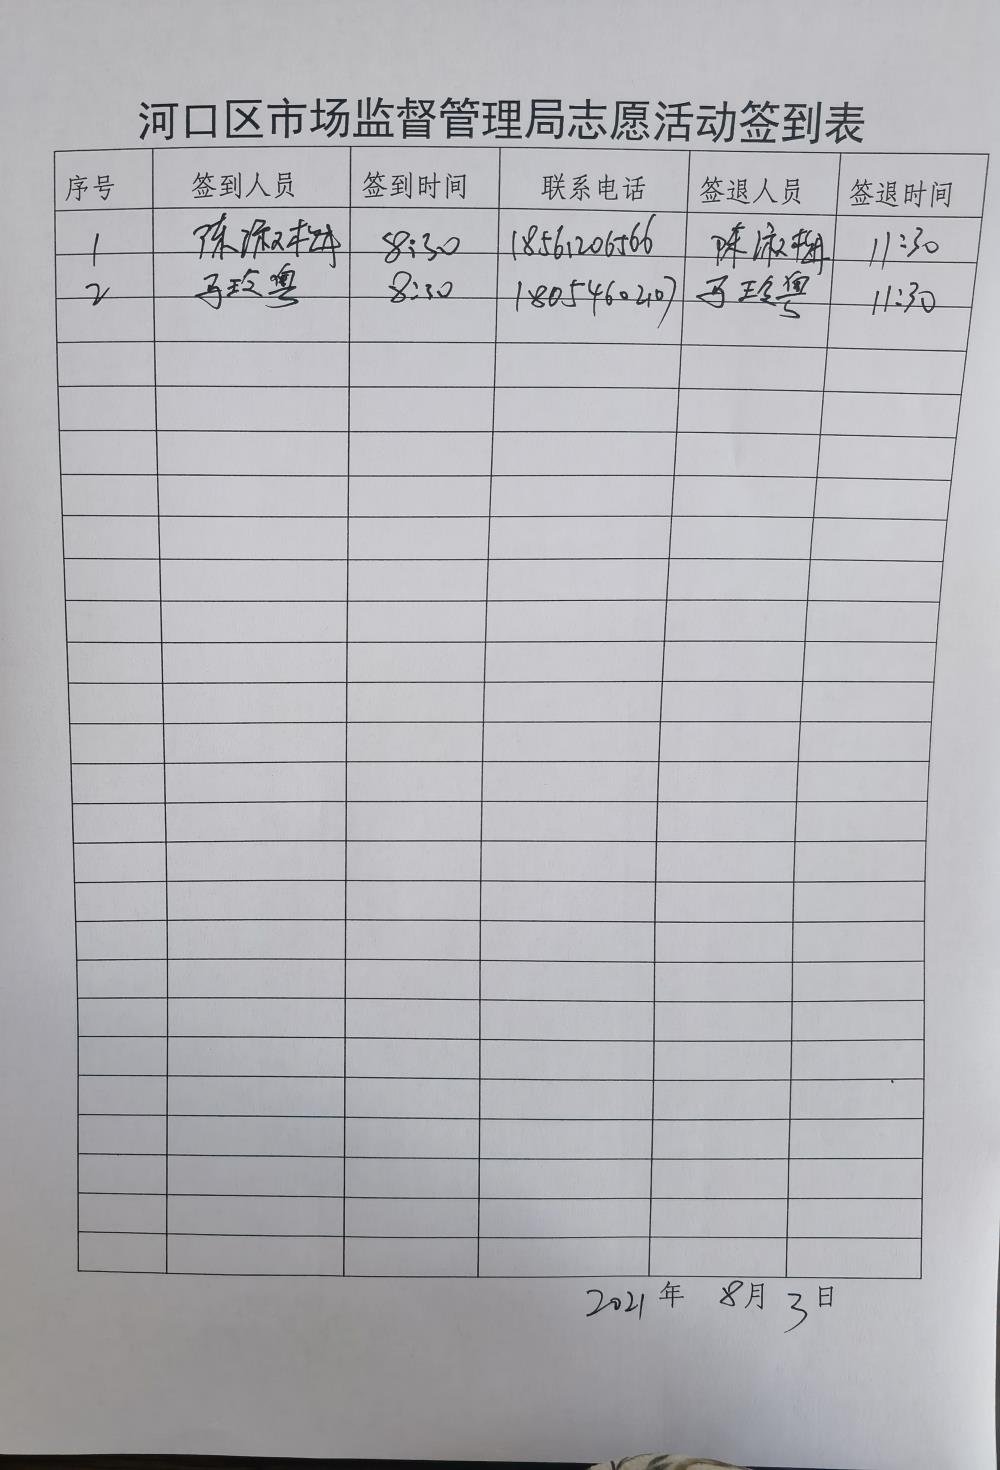 河口区市场监督管理局志愿活动签到表
序号 签到人员 签到时间 联系电话 签退人员 签退时间
1 陈淑梅 8:30 18561206566 陈淑梅 11:30
2 马玲粤 8:30 18054602107 马玲粤 11:30
2021年 8月3日